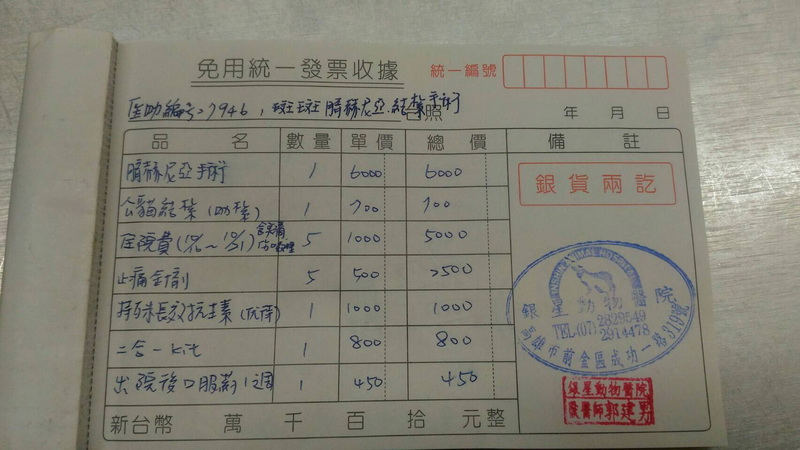 免用統一發票收據
統一編號
醫助編號:7946,斑斑臍赫尼亞.結紮手術
台照
年 月 日
品 名 數量 單價 總價 備註
臍赫尼亞手術 1 6000 6000
公貓結紮(助紮) 1 700 700
住院費(10/16~10/21) 5 1000 5000
止痛全劑 5 500 2500
特殊長效抗生素 1 1000 1000
二合一kit 1 800 800
出院後口服葯1週 1 450 450
新台幣 萬 千 百 拾 元整
銀貨兩訖
銀星動物醫院
TEL:(07)2829549
2914478
高雄市前金區成功一路319號
銀星動物醫院
獸醫師郭建男